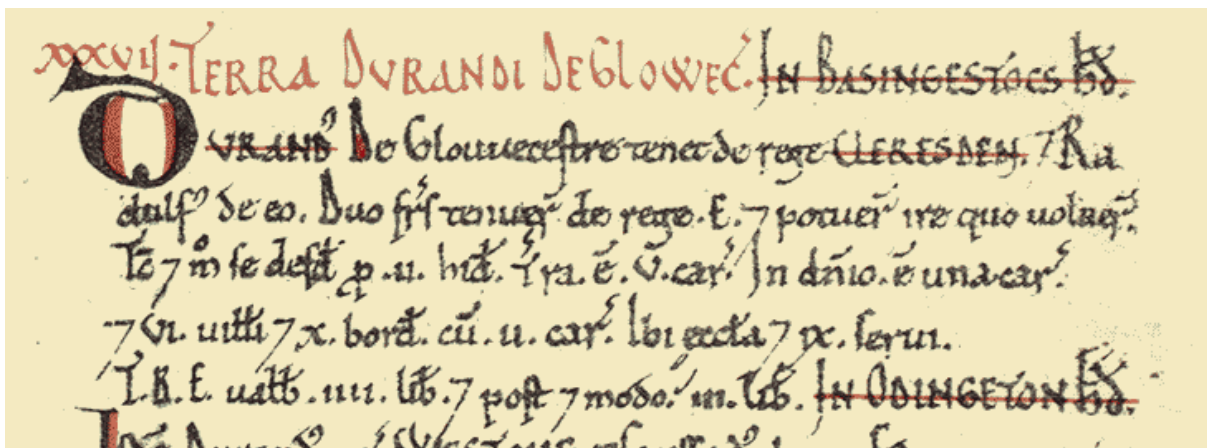 XXXVII. TERRA DURANDI DE GLOWEC̃. IN BASINGESTOCS HD̃.
DVRAND⁹ De Glouueceſtre tenet de rege CLERESDEN. ⁊ Ra
dulf⁹ de eo. Duo fr̃s tenueр̃ de rege. E. ⁊ potueр̃ ire quo uolueр̃.
Tc̃ ⁊ m̊ ſe defd̃ ꝑ .ii. hid̃. T̃ra. ẽ. v. car̃. In dñio. ẽ una car̃.
⁊ vi. uiłłi ⁊ x. bord̃. cũ. ii. car̃. Ibi æccła ⁊ ix. ſerui.
T.R.E. uałb̃ .iiii. lib̃. ⁊ poſt ⁊ modo. iii. lib̃. IN ODINGETON HD̃.